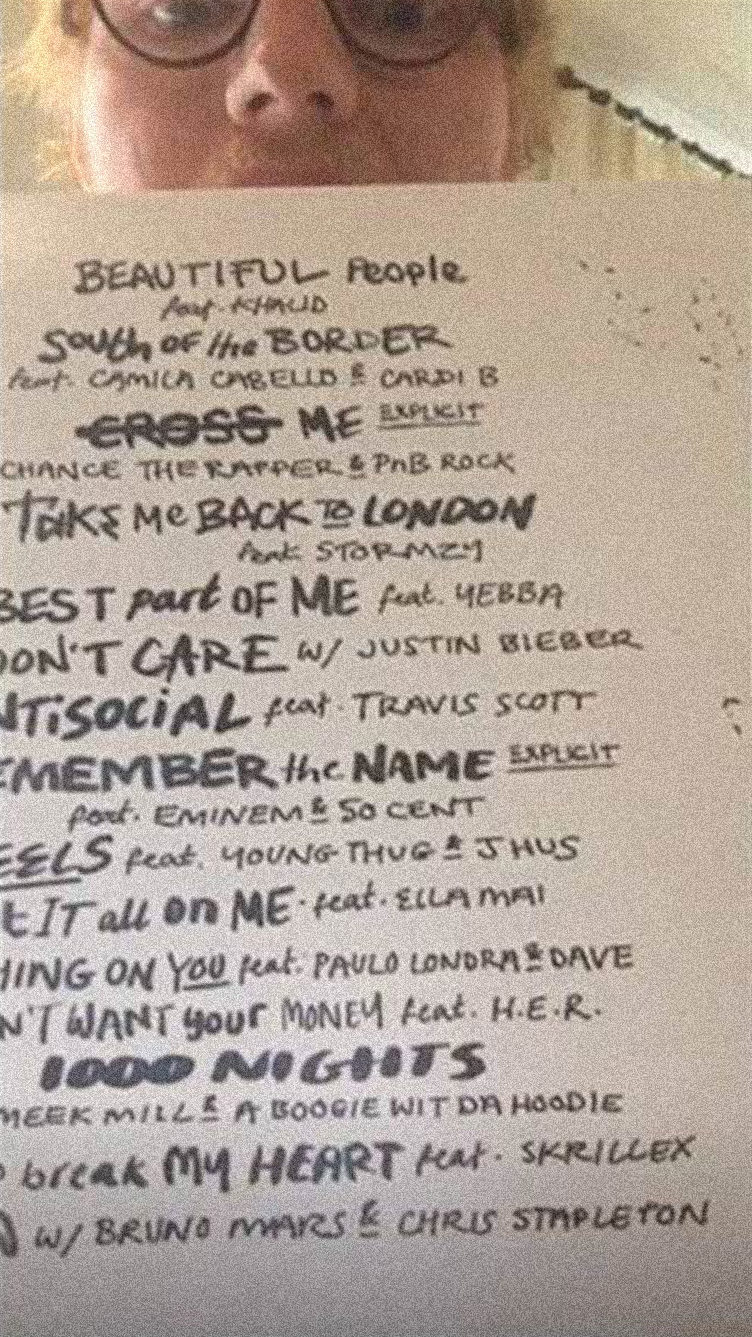 BEAUTIFUL People
feat. KHALID
South OF the BORDER
feat. CAMILA CABELLO & CARDI B
CROSS ME EXPLICIT
CHANCE THE RAPPER & PnB ROCK
TAKE Me BACK TO LONDON
feat STORMZY
BEST part OF ME feat. YEBBA
DON'T CARE w/ JUSTIN BIEBER
NTiSOCiAL feat. TRAVIS SCOTT
EMEMBER the NAME EXPLICIT
feat. EMINEM & 50 CENT
EELS feat. YOUNG THUG & J HUS
t IT all on ME. feat. ELLA MAI
HING ON YOU feat. PAULO LONDRA & DAVE
N'T WANT your MONEY feat. H.E.R.
1000 NIGHTS
MEEK MILL & A BOOGIE WIT DA HOODIE
break MY HEART feat. SKRILLEX
w/ BRUNO MARS & CHRIS STAPLETON